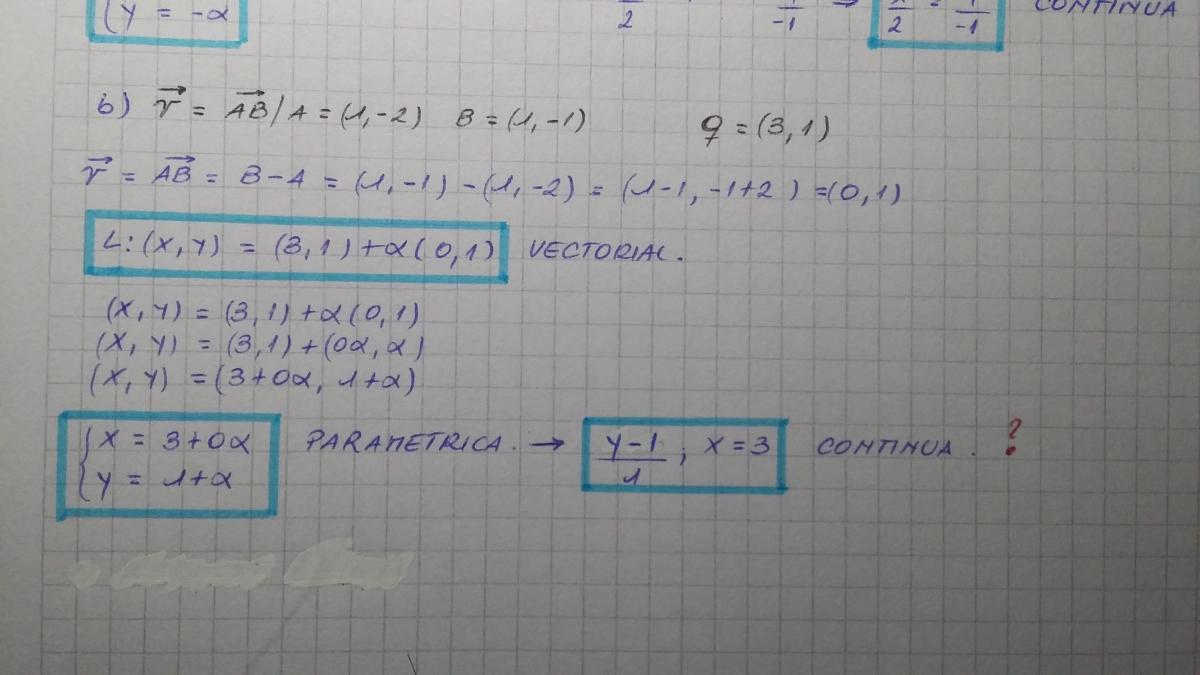 {y = -α 2 -1 → x/2 = y/-1 CONTINUA
b) v⃗ = AB⃗ / A = (1,-2) B = (1,-1) q = (3,1)
v⃗ = AB⃗ = B-A = (1,-1) - (1,-2) = (1-1, -1+2) = (0,1)
L: (x,y) = (3,1) + α(0,1) VECTORIAL.
(x,y) = (3,1) + α(0,1)
(x,y) = (3,1) + (0α, α)
(x,y) = (3+0α, 1+α)
{x = 3+0α PARAMETRICA. → y-1/1 ; x=3 CONTINUA. ?
{y = 1+α